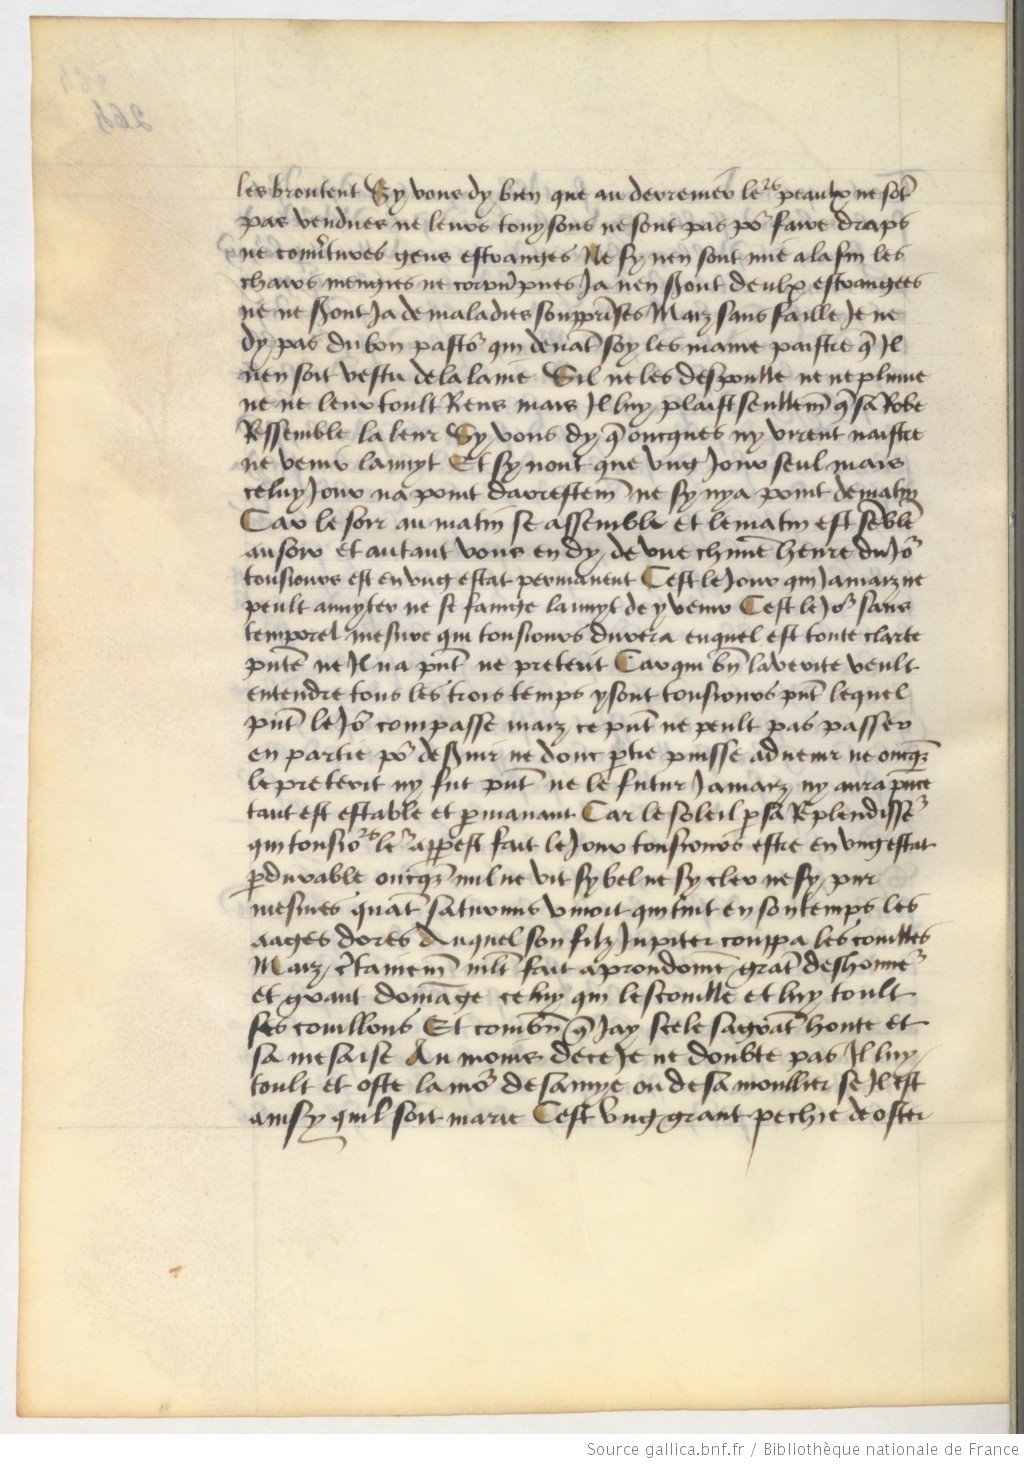 les broutent Sy vous dy bien que au derrenier le^rs peaulx ne sōt
pas vendues ne leurs touysons ne sont pas po^r faire draps
ne couv̄tures gens estranges Ne sy nen sont mie a la fin les
chars mengies ne Ja nen seront deulx estrangees
ne ne seront Ja de maladies souppri̅ses Maiz sans faille Je ne
dy pas du bon pasto^r qui devāt soy les maine paistre q̄ Il
nen soit vestu de la laine Sil ne les despoulle ne ne plume
ne ne leur toult Riens mais Il luy plaist seullem̄ q̄ sa Robe
Ressemble la leur Sy vous dy q̄ oncques ny virent naistre
ne venir la nuyt Et sy nont que vng Jour seul mais
celuy Jour na point davrestem̄ ne sy nya point de matin
Car le soir au matin se assemble et le matin est sēblē
au soir et autant vous en dy de vne chūne heure du Jo^r
tousiours est en vng estat permanent Cest le Jour qui Jamaiz ne
peult annyter ne se fainge la nuyt de y venir Cest le Jo^r sans
temporel mesure qui tousiours durera enquel est toute clarte
pn̄te ne Il na pn̄t ne preterit Car qui bn̄ la verite veult
entendre tous les trois temps y sont tousiours pn̄t lequel
pn̄t le Jo^r compasse maiz ce pn̄t ne peult pas passer
en partie po^r definir ne dont p̄tie puisse advenir ne oncq̄z
le preterit ny fut pn̄t ne le futur Jamaiz ny aura pn̄ce
tant est estable et p̄manant Car le soleil p̄ sa Resplendissē^r
qui tousio^rs le^r app̄est fait le Jour tousiours estre en vng estat
p̄durable oncq̄z nul ne vit sy bel ne sy cler ne sy pur
mesmes quāt saturnus vivoit qui tint en son temps les
aages dores Auquel son filz Jupiter couppa les couilles
Maiz c̄tainem̄ ml̄t fait a preudōme grāt deshonne^r
et grant domāge celuy qui lescouille et luy toult
ses couillons Et combn̄ q̄ Jay scele sa grāt honte et
sa mesaise Au moins de ce Je ne doubte pas Il luy
toult et oste lamo^r de samye ou de sa moullier se Il est
ainsy quil soit marie Cest vng grant pechie de oster
Source gallica.bnf.fr / Bibliothèque nationale de France